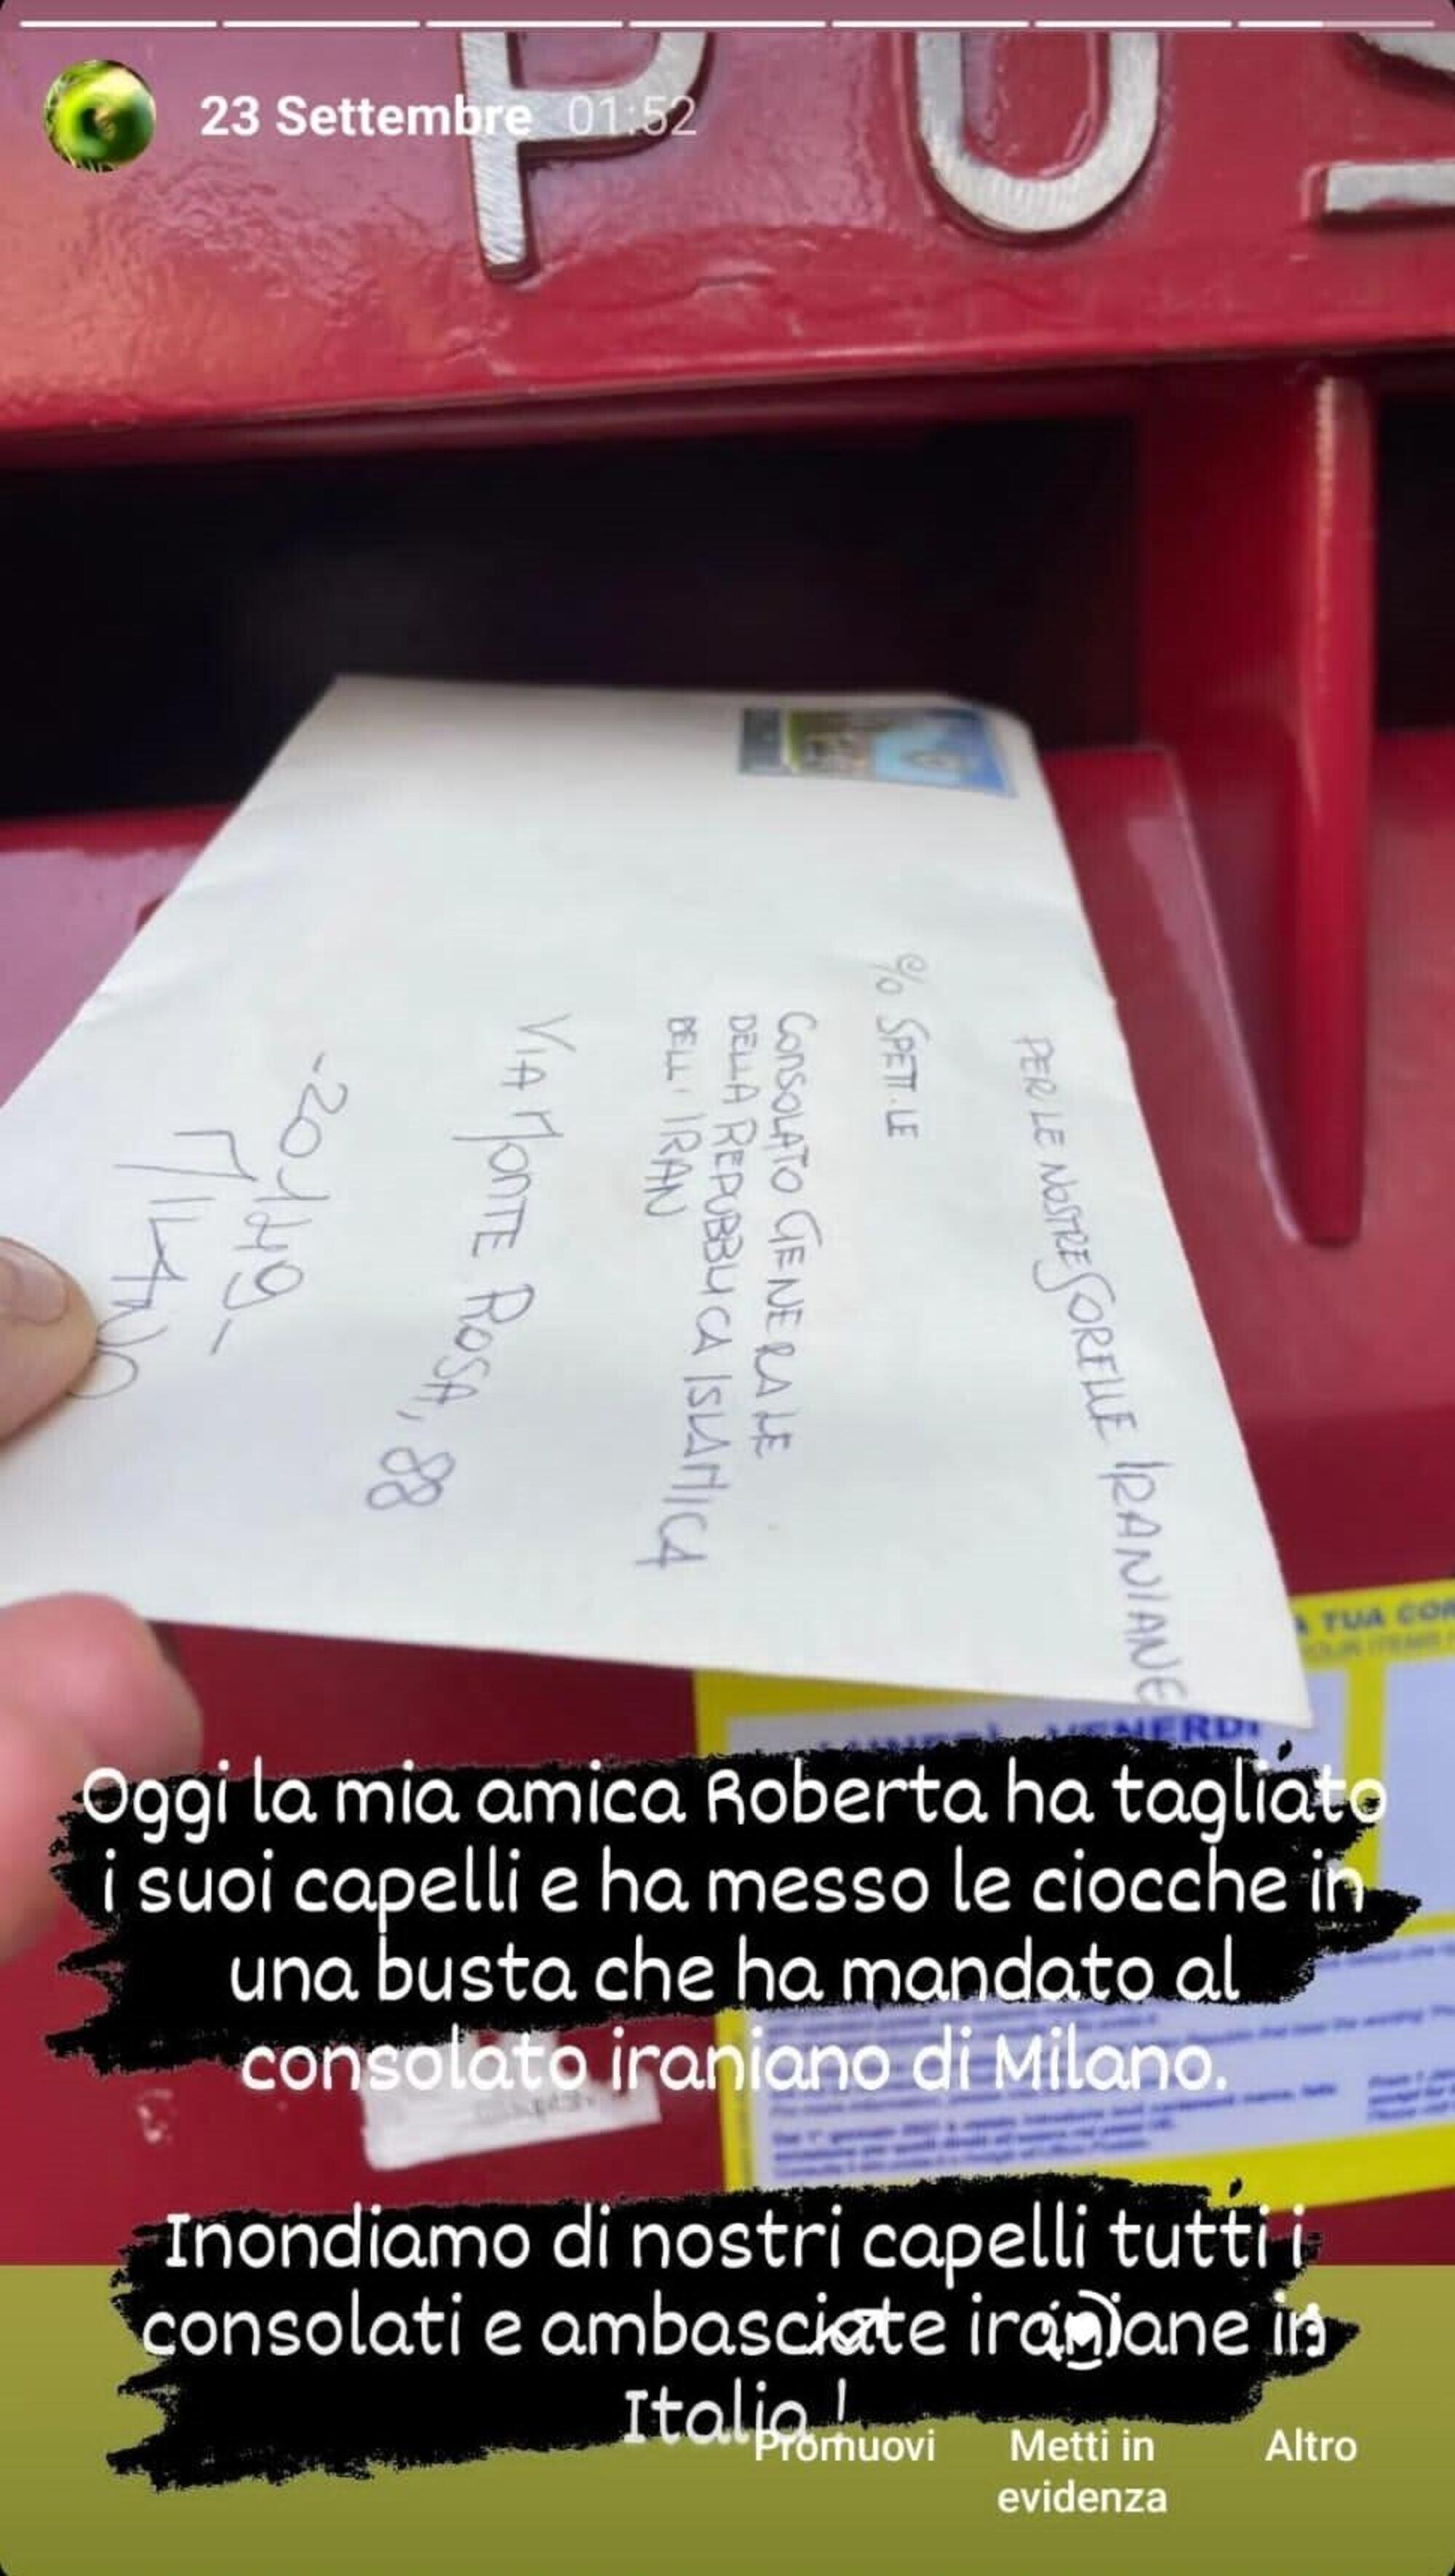 23 Settembre 01:52
PO
PER LE NOSTRE SORELLE IRANIANE
% SPETT.LE
CONSOLATO GENERALE
DELLA REPUBBLICA ISLAMICA
DELL' IRAN
VIA MONTE ROSA, 88
-20149-
MILANO
TUA COR
LUNEDÌ VENERDÌ
Oggi la mia amica Roberta ha tagliato
i suoi capelli e ha messo le ciocche in
una busta che ha mandato al
consolato iraniano di Milano.
Inondiamo di nostri capelli tutti i
consolati e ambasciate iraniane in
Italia !
Promuovi
Metti in
evidenza
Altro